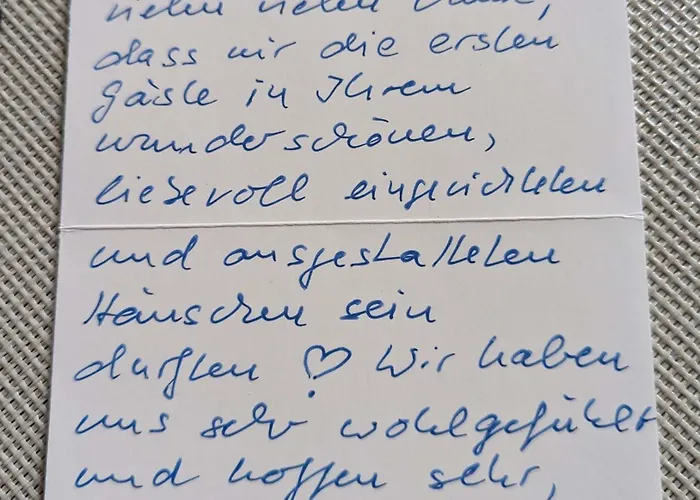 vielen vielen Dank,
dass wir die ersten
Gäste in Ihrem
wunderschönen,
liebevoll eingerichteten
und ausgestatteten
Häuschen sein
durften ♡ Wir haben
uns sehr wohlgefühlt
und hoffen sehr,